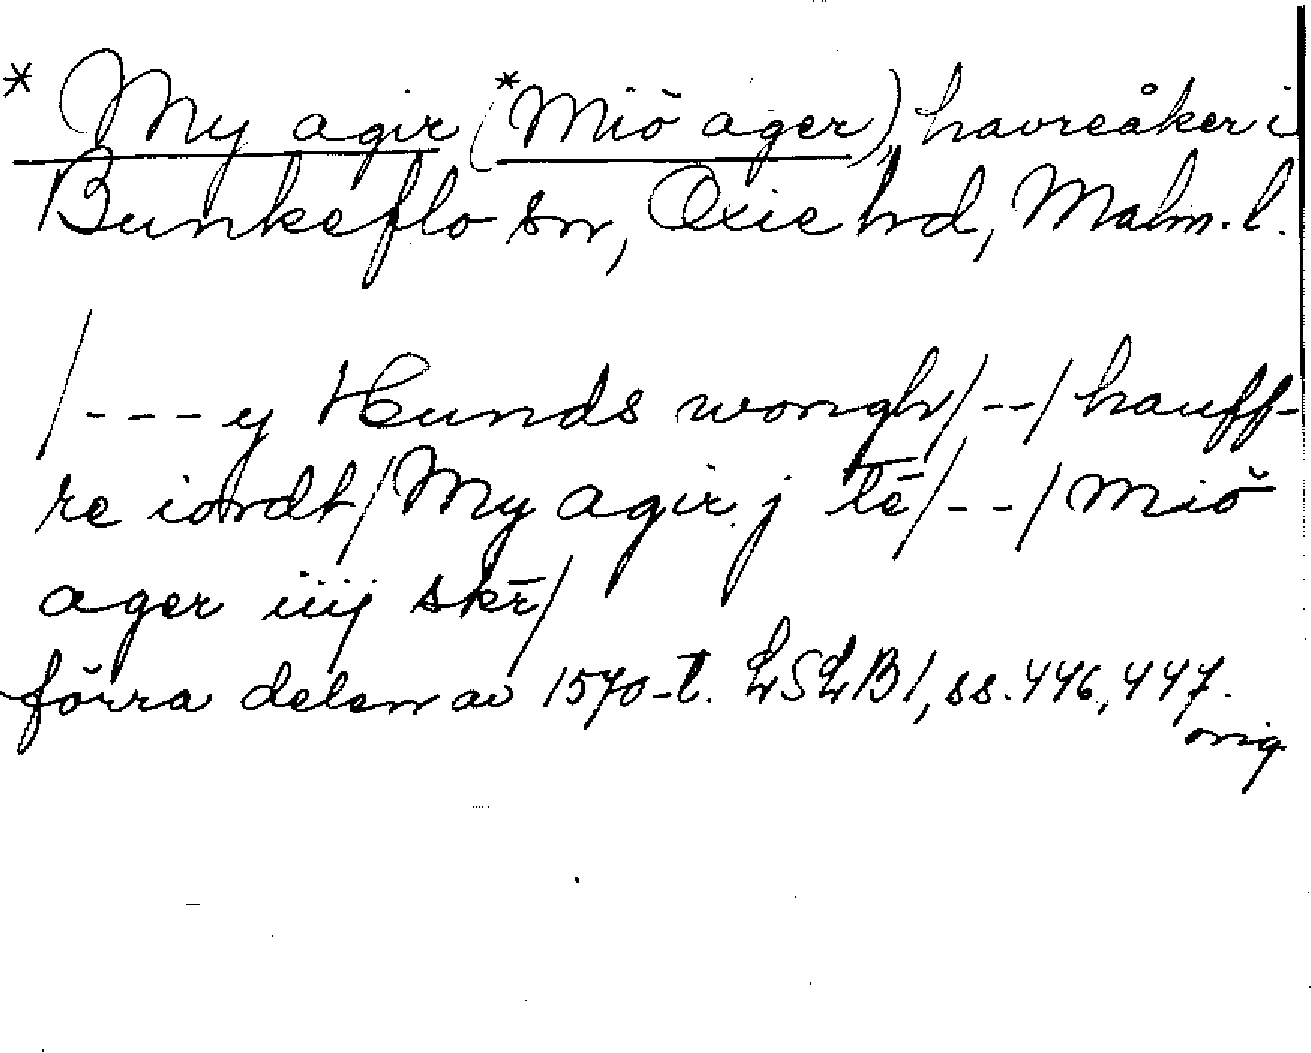 * My agir (*Miö ager), havreåker i
Bunkeflo sn, Oxie hd, Malm. l.
/---y Hunds wongh/--/hauff-
re iordt/My agir j lē/--/Miö
ager iiij skr̄/
förra delen av 1570-t. LSLB1, ss. 446, 447.
orig